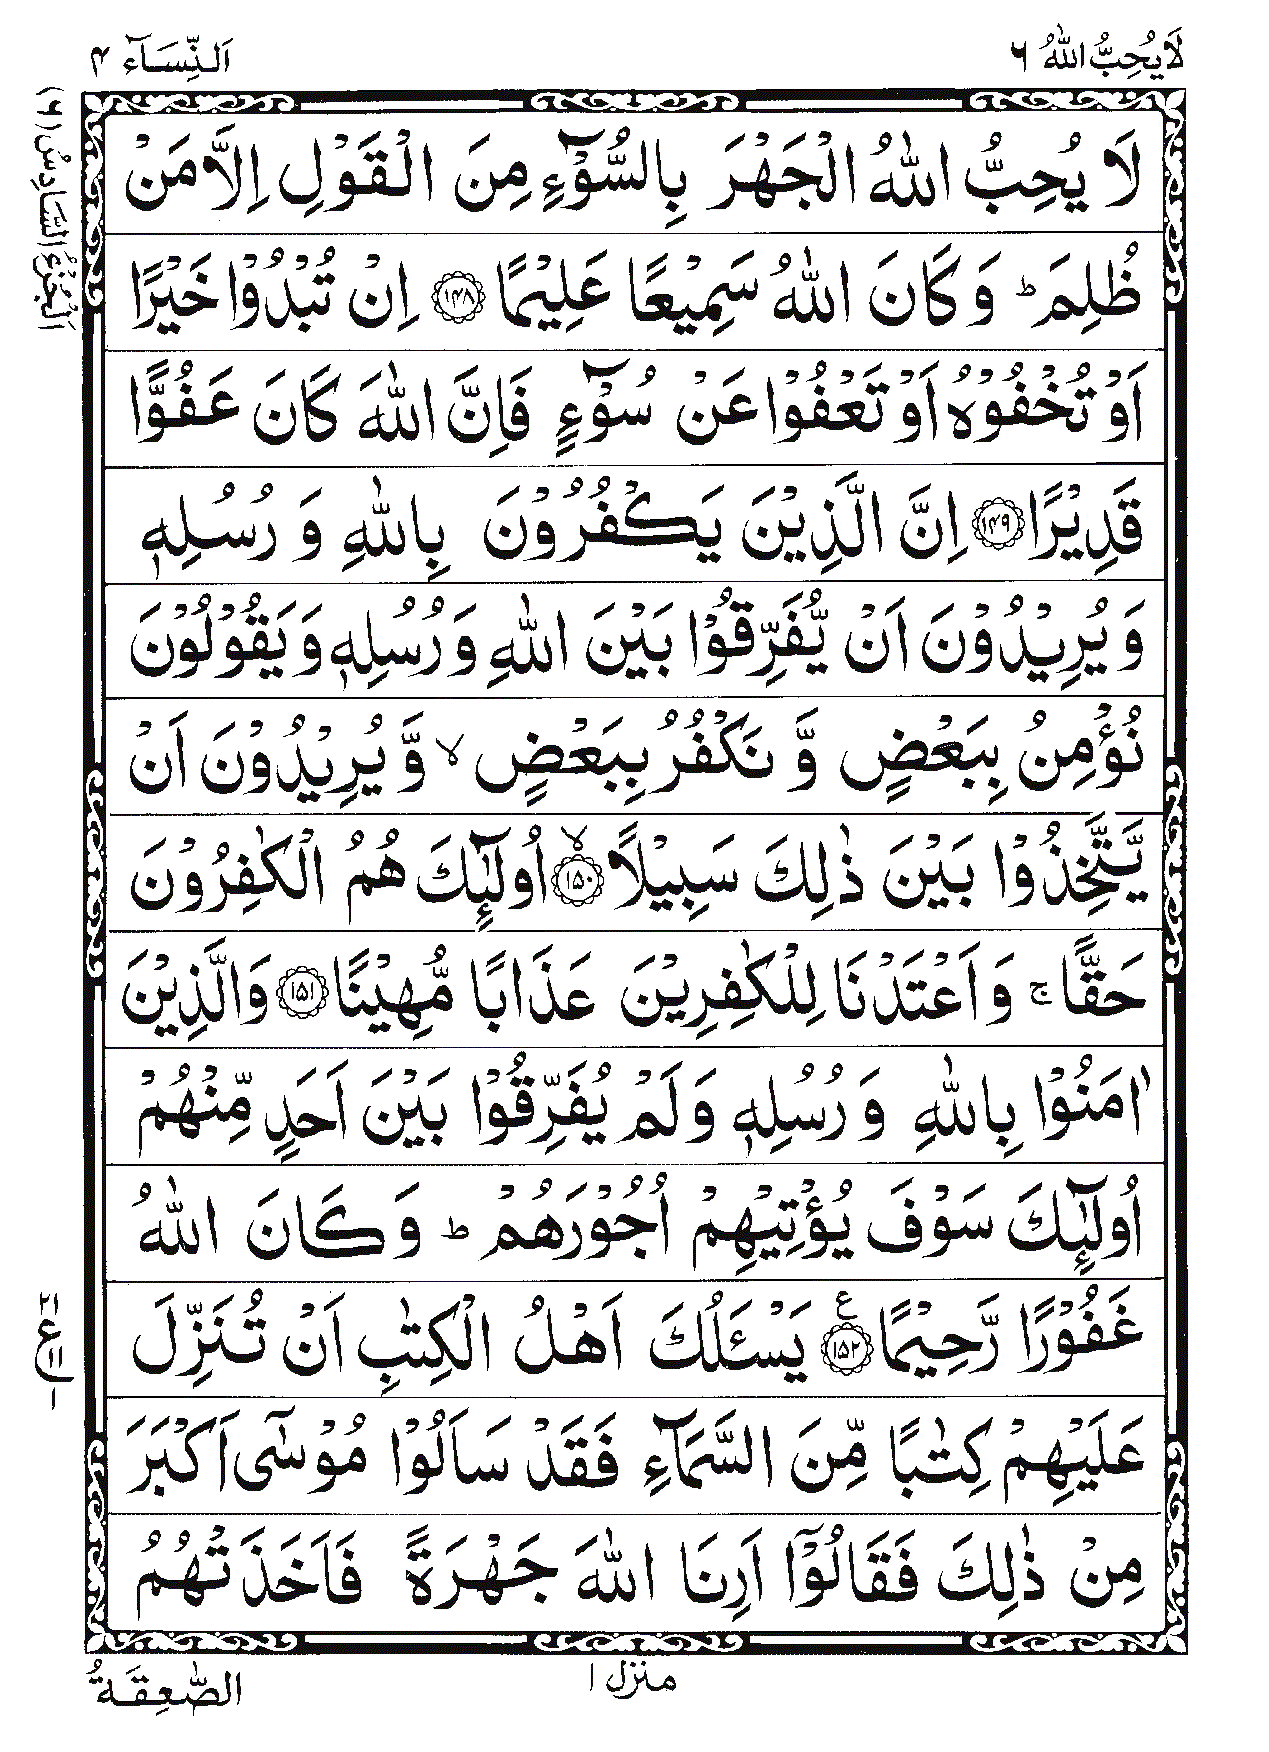 لَا يُحِبُّ اللّٰهُ ٦
اَلنِّسَآء ۴
اَلْجُزْءُ السَّادِسُ (٦)
لَا يُحِبُّ اللّٰهُ الْجَهْرَ بِالسُّوْٓءِ مِنَ الْقَوْلِ اِلَّا مَنْ
ظُلِمَ ؕ وَ كَانَ اللّٰهُ سَمِيْعًا عَلِيْمًا ﴿۱۴۸﴾ اِنْ تُبْدُوْا خَيْرًا
اَوْ تُخْفُوْهُ اَوْ تَعْفُوْا عَنْ سُوْٓءٍ فَاِنَّ اللّٰهَ كَانَ عَفُوًّا
قَدِيْرًا ﴿۱۴۹﴾ اِنَّ الَّذِيْنَ يَكْفُرُوْنَ بِاللّٰهِ وَ رُسُلِهٖ
وَ يُرِيْدُوْنَ اَنْ يُّفَرِّقُوْا بَيْنَ اللّٰهِ وَ رُسُلِهٖ وَ يَقُوْلُوْنَ
نُؤْمِنُ بِبَعْضٍ وَّ نَكْفُرُ بِبَعْضٍ ۙ وَّ يُرِيْدُوْنَ اَنْ
يَّتَّخِذُوْا بَيْنَ ذٰلِكَ سَبِيْلًا ﴿۱۵۰﴾ۙ اُولٰٓئِكَ هُمُ الْكٰفِرُوْنَ
حَقًّا ۚ وَ اَعْتَدْنَا لِلْكٰفِرِيْنَ عَذَابًا مُّهِيْنًا ﴿۱۵۱﴾ وَالَّذِيْنَ
اٰمَنُوْا بِاللّٰهِ وَ رُسُلِهٖ وَ لَمْ يُفَرِّقُوْا بَيْنَ اَحَدٍ مِّنْهُمْ
اُولٰٓئِكَ سَوْفَ يُؤْتِيْهِمْ اُجُوْرَهُمْ ؕ وَ كَانَ اللّٰهُ
غَفُوْرًا رَّحِيْمًا ﴿۱۵۲﴾ع يَسْـَٔلُكَ اَهْلُ الْكِتٰبِ اَنْ تُنَزِّلَ
عَلَيْهِمْ كِتٰبًا مِّنَ السَّمَآءِ فَقَدْ سَاَلُوْا مُوْسٰٓى اَكْبَرَ
مِنْ ذٰلِكَ فَقَالُوْٓا اَرِنَا اللّٰهَ جَهْرَةً فَاَخَذَتْهُمُ
۲۱
ع
۱۱
۱
منزل ۱
الصّٰعِقَةُ